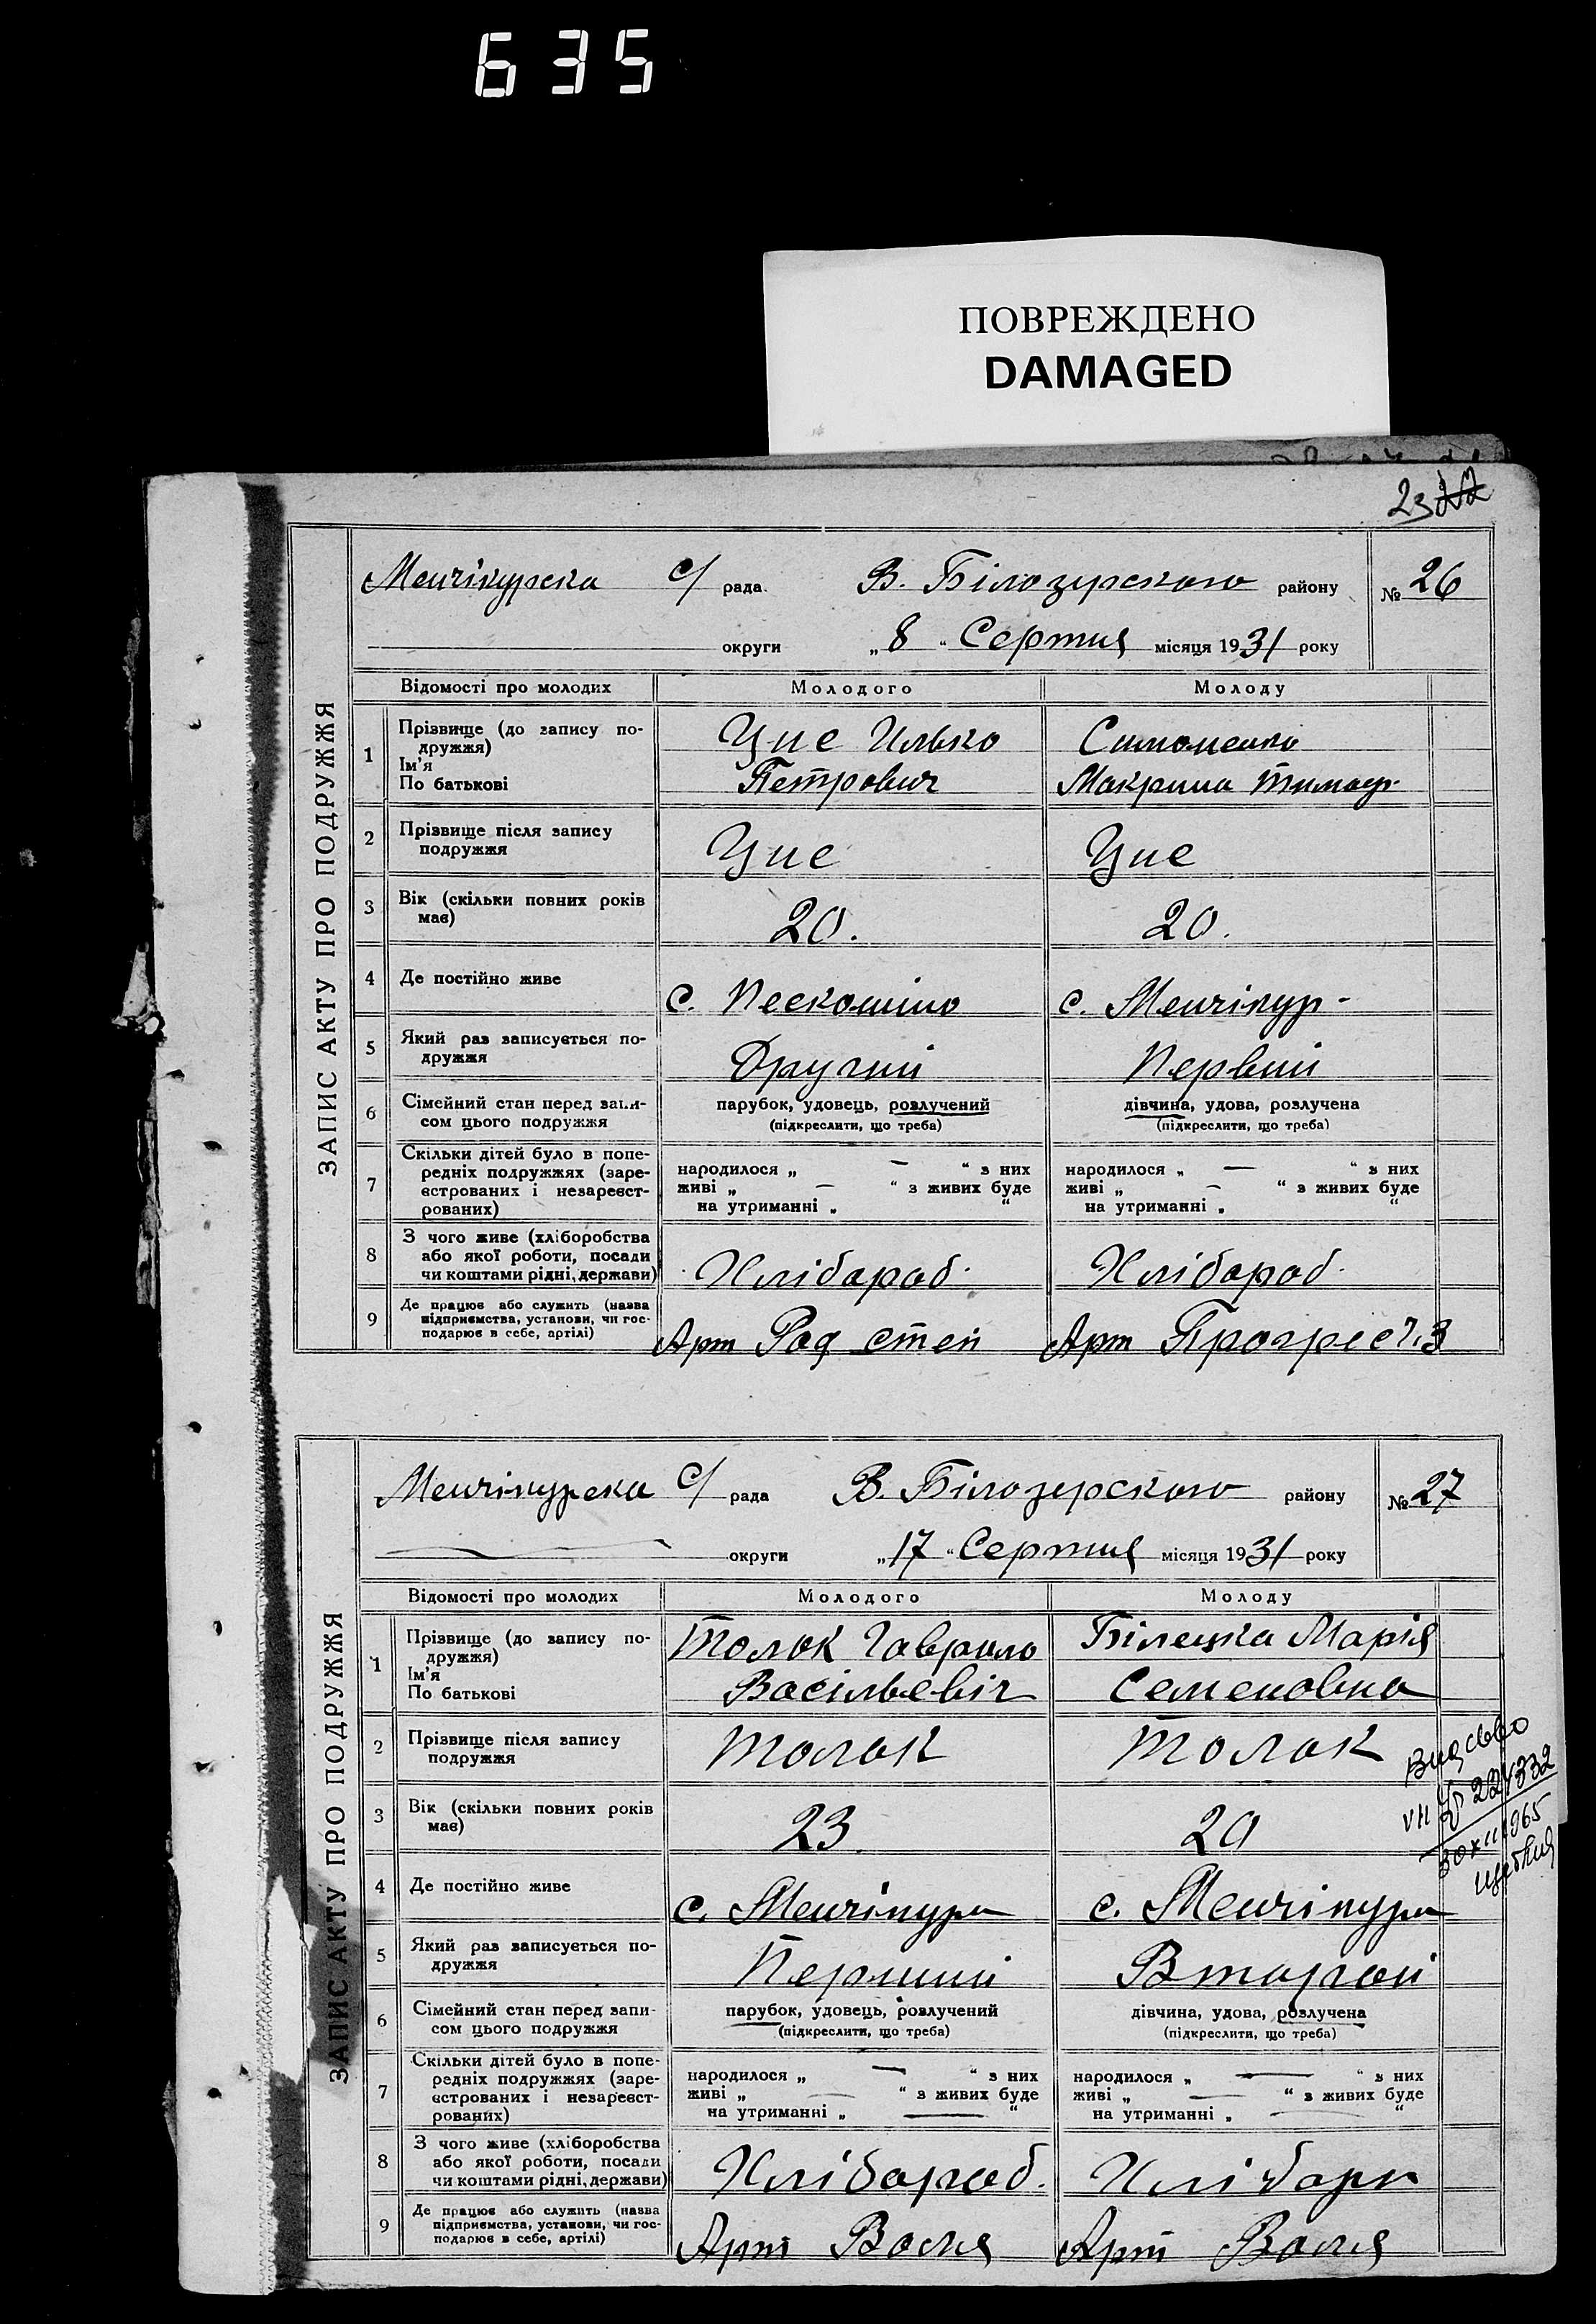 635
ПОВРЕЖДЕНО
DAMAGED
23
ЗАПИС АКТУ ПРО ПОДРУЖЖЯ
Менчікурска С/ рада. В. Білозерского району № 26
округи „8“ Серпня місяця 1931 року
Відомості про молодих Молодого Молоду
1 Прізвище (до запису по-
дружжя)
Ім'я
По батькові
Уце Илько
Петрович
Симоненко
Макрина Тимоф.
2 Прізвище після запису
подружжя
Уце Уце
3 Вік (скільки повних років
має)
20. 20.
4 Де постійно живе
с. Пескошіно с. Менчікур-
5 Який раз записується по-
дружжя
Другий Первий
6 Сімейний стан перед запи-
сом цього подружжя
парубок, удовець, розлучений
(підкреслити, що треба)
дівчина, удова, розлучена
(підкреслити, що треба)
7 Скільки дітей було в попе-
редніх подружжях (заре-
єстрованих і незареєст-
рованих)
народилося „ — “ з них
живі „ — “ з живих буде
на утриманні „ “
народилося „ — “ з них
живі „ — “ з живих буде
на утриманні „ “
8 З чого живе (хліборобства
або якої роботи, посади
чи коштами рідні, держави)
Хлібароб. Хлібароб.
9 Де працює або служить (назва
підприємства, установи, чи гос-
подарює в себе, артілі)
Арт Рад степ Арт Прогрес ч.3
ЗАПИС АКТУ ПРО ПОДРУЖЖЯ
Менчікурска С/ рада В. Білозерского району № 27
округи „17“ Серпня місяця 1931 року
Відомості про молодих Молодого Молоду
1 Прізвище (до запису по-
дружжя)
Ім'я
По батькові
Толок Гаврило
Васільевіч
Білецка Марія
Семеновна
2 Прізвище після запису
подружжя
Толок Толок
3 Вік (скільки повних років
має)
23 20
4 Де постійно живе
с. Менчікури с. Менчікури
5 Який раз записується по-
дружжя
Перший Второй
6 Сімейний стан перед запи-
сом цього подружжя
парубок, удовець, розлучений
(підкреслити, що треба)
дівчина, удова, розлучена
(підкреслити, що треба)
7 Скільки дітей було в попе-
редніх подружжях (заре-
єстрованих і незареєст-
рованих)
народилося „ — “ з них
живі „ — “ з живих буде
на утриманні „ — “
народилося „ — “ з них
живі „ — “ з живих буде
на утриманні „ — “
8 З чого живе (хліборобства
або якої роботи, посади
чи коштами рідні, держави)
Хлібароб. Хлібаро
9 Де працює або служить (назва
підприємства, установи, чи гос-
подарює в себе, артілі)
Арт Воля Арт Воля